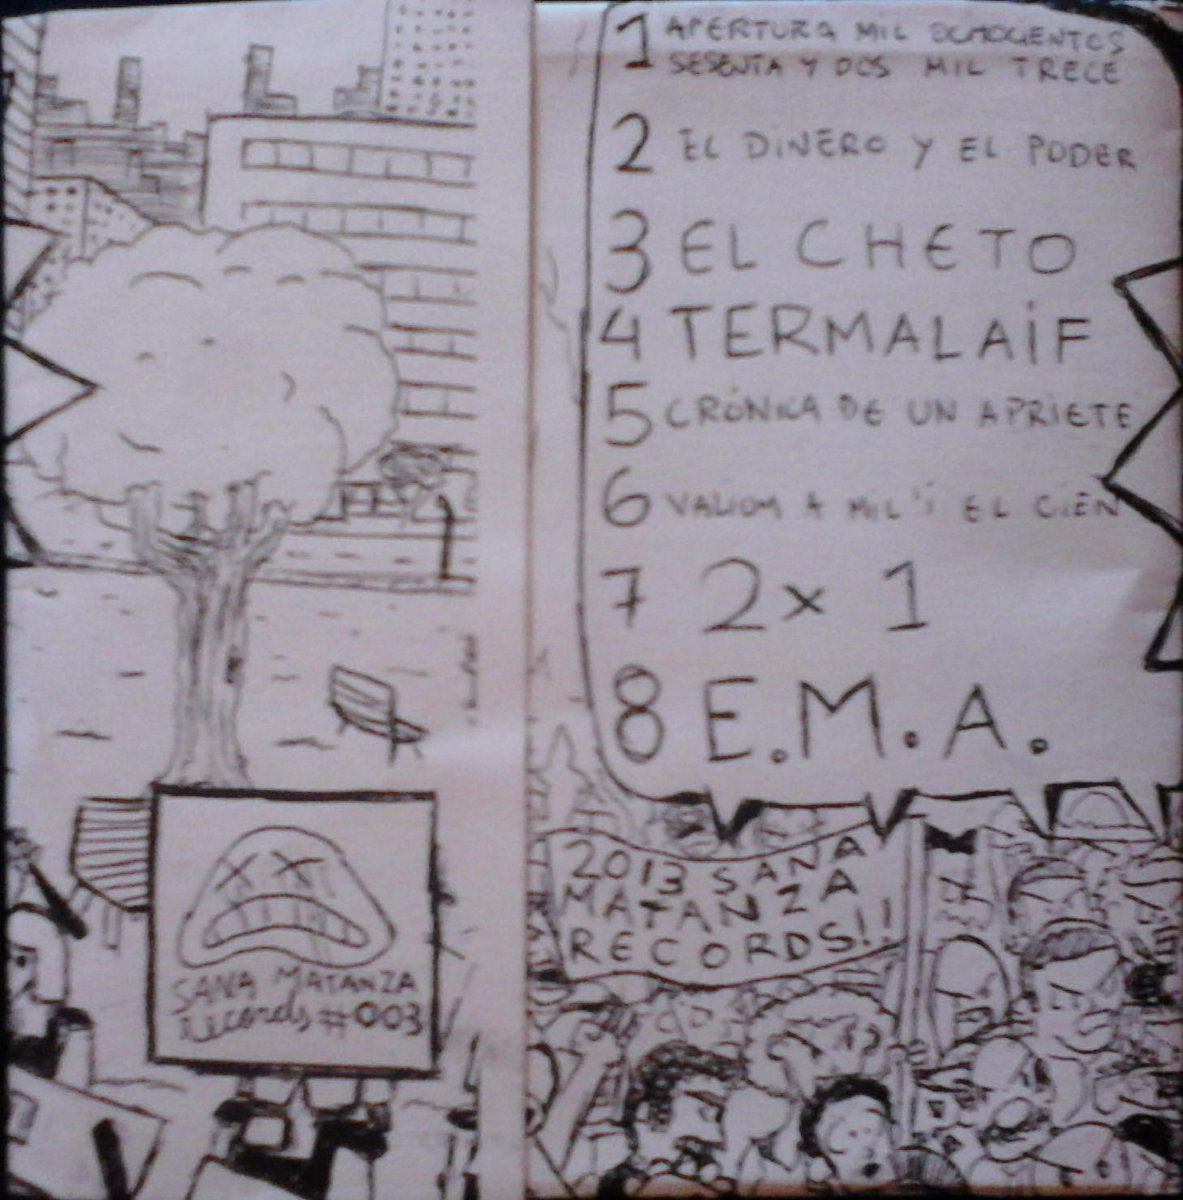 1 APERTURA MIL OCHOCIENTOS
SESENTA Y DOS MIL TRECE
2 EL DINERO Y EL PODER
3 EL CHETO
4 TERMALAIF
5 CRÓNICA DE UN APRIETE
6 A MIL EL CIEN
7 2x1
8 E.M.A.
2013 SANA
MATANZA
RECORDS!!
SANA MATANZA
records #003